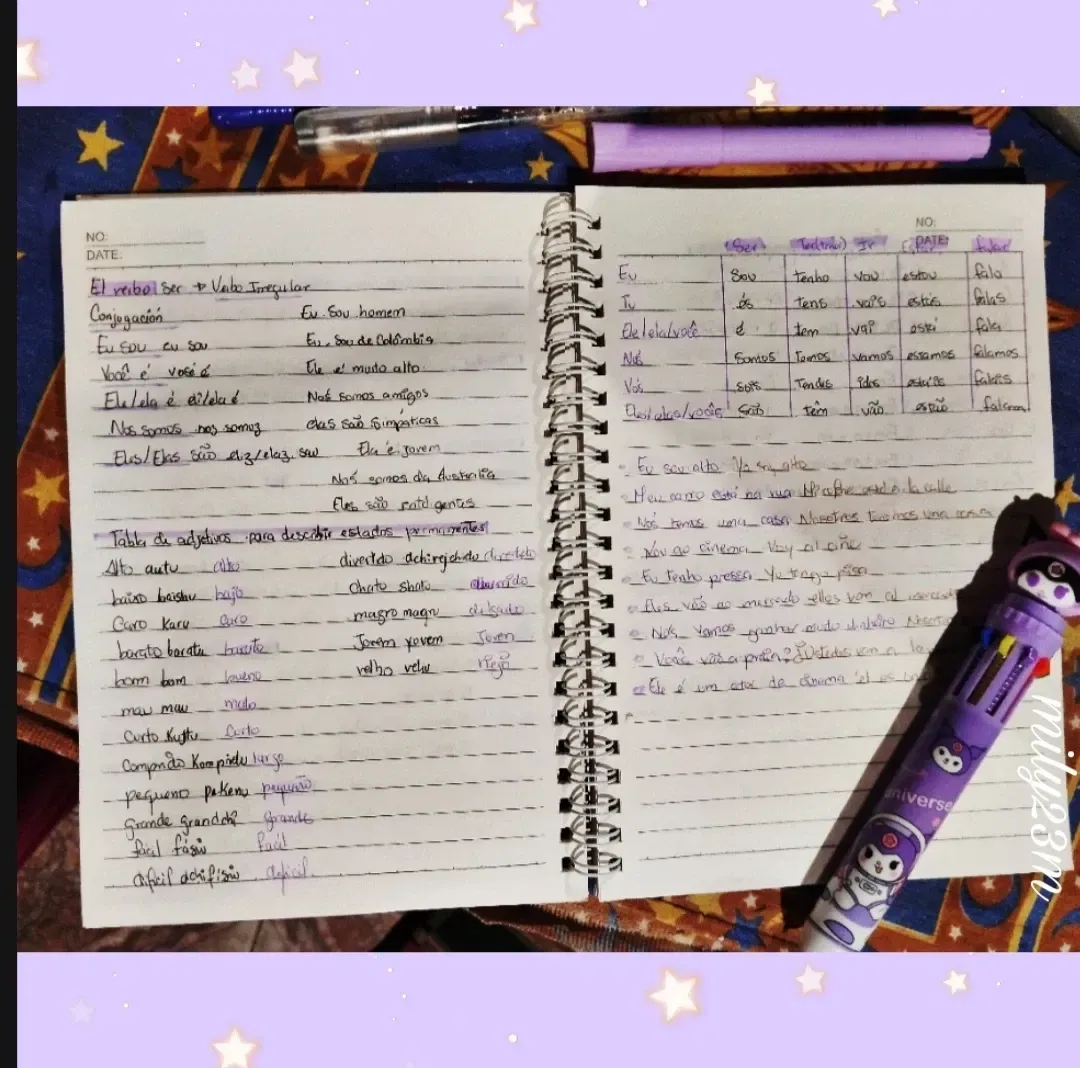 NO:
DATE:
El verbo Ser → Verbo Irregular
Conjugación Eu Sou homem
Eu sou eu sou Eu Sou de Colômbia
Você é vosé é Ele é muito alto
Ele/ela é eli/ela é Nos somos amigos
Nos somos nos somuz elas são simpáticas
Eles/Elas são eliz/elaz sau Ela é jovem
Nos somos da Australia
Eles são
Tabla de adjetivos para describir estados permanentes
Alto autu alto divertido
baixo baishu bajo Chato shatu aburrido
Caro Karu Caro magro magru delgado
barato baratu barato Jovem yovem Joven
bom bom bueno velho velu viejo
mau mau malo
Curto Kurtu Corto
largo
pequeno pekenu pequeño
Grande grandchi grande
fácil fásiu fácil
dificil dchifisiu dificil
NO:
DATE:
Ser Ter Ir Estar falar
Eu Sou tenho vou estou falo
Tu és tens vais estás falas
Ele/ela/você é tem vai está fala
Nós Somos Temos vamos falamos
Vós sois Tendes ides estais falais
Eles/elas/vocês São têm vão estão falam
Eu sou alto Yo soy alto
Meu carro está na rua Mi coche está la calle
Nós temos uma casa Nosotros tenemos una casa
Vou ao cinema Voy al cine
Eu Tenho pressa Yo tengo prisa
Eles vão ao mercado ellos van al
Nós Vamos ganhar muito dinheiro
Ustedes van a
Ele é um ator de cinema él es
universe
mily23m